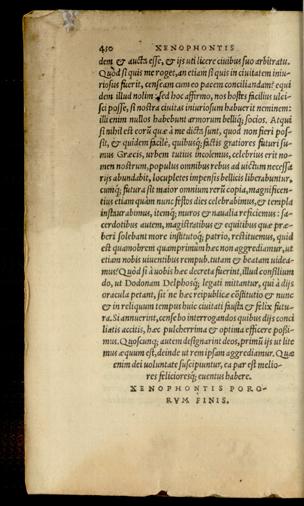 430 XENOPHONTIS
dem & aucta esse, & ijs uti licere ciuibus suo arbitratu.
Quòd si quis me roget, an etiam si quis in ciuitatem iniu-
riosus fuerit, censeam cum eo pacem conciliandam? equi
dem illud nolim: sed hoc affirmo, nos hostes facilius ulci-
sci posse, si nostra ciuitas iniuriosum habuerit neminem:
illi enim nullos habebunt armorum belliq; socios. Atqui
si nihil est eorũ quæ à me dicta sunt, quod non fieri pos-
sit, & quidem facilè, quibusq; factis gratiores futuri su-
mus Græcis, urbem tutius incolemus, celebrius erit no-
men nostrum, populus omnibus rebus ad uictum necessa
rijs abundabit, locupletes impensis bellicis liberabuntur,
cumq; futura sit maior omnium rerũ copia, magnificen-
tius etiam quàm nunc festos dies celebrabimus, & templa
instaurabimus, itemq; muros & naualia reficiemus: sa-
cerdotibus autem, magistratibus & equitibus quæ præ-
beri solebant more institutoq; patrio, restituemus, quid
est quamobrem quamprimùm hæc non aggrediamur, ut
etiam nobis uiuentibus rempub. tutam & beatam uidea-
mus? Quòd si à uobis hæc decreta fuerint, illud consilium
do, ut Dodonam Delphosq; legati mittantur, qui à dijs
oracula petant, sit ne hæc reipublicæ cõstitutio & nunc
& in reliquum tempus huic ciuitati fausta & felix futu-
ra. Si annuerint, censebo interrogandos quibus dijs conci
liatis accitis, hæc pulcherrima & optima efficere possi-
mus. Quoscunq; autem designarint deos, primũ ijs ut lite
mus æquum est, deinde ut rem ipsam aggrediamur. Quæ
enim dei uoluntate suscipiuntur, ea par est melio-
res felicioresq; euentus habere.
XENOPHONTIS PORO-
RVM FINIS.